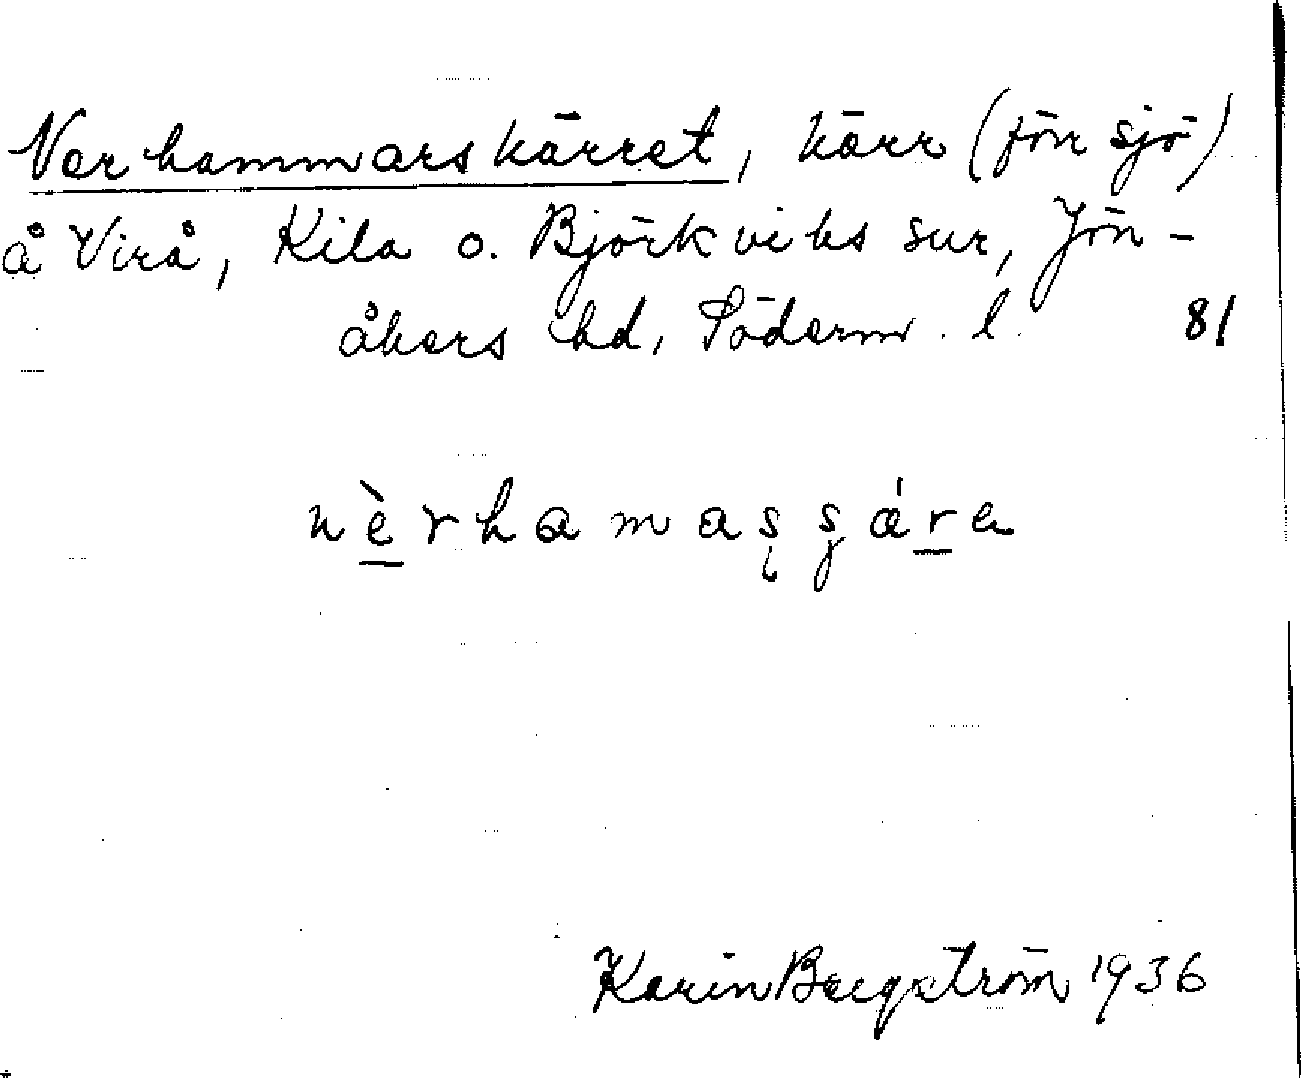 Nerhammarskärret, kärr (förr sjö)
å Virå, Kila o. Björkviks snr, Jön-
åkers hd, Söderm. l. 81
nèrhamasşára
Karin Bergström 1936